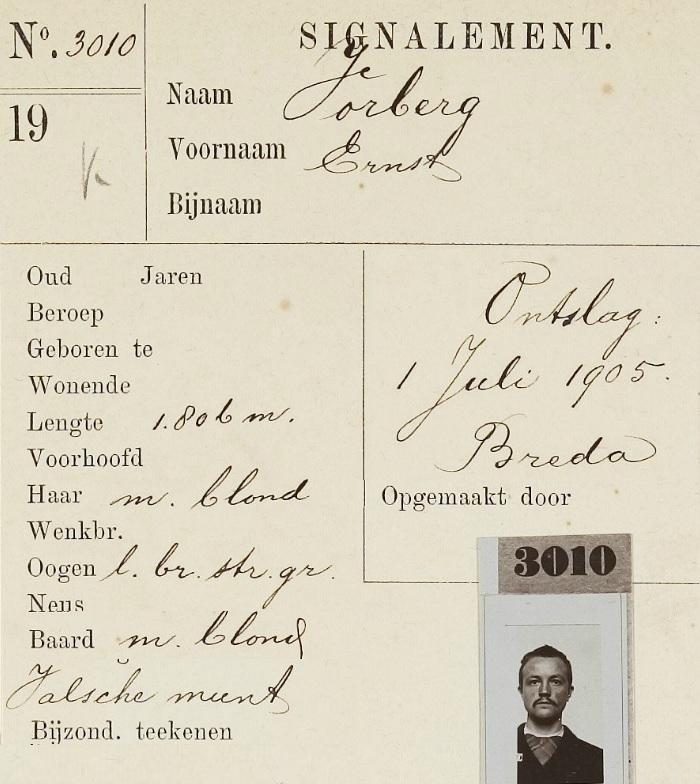 Nº. 3010
19
SIGNALEMENT.
Naam
Voornaam Ernst
Bijnaam
Oud Jaren
Beroep
Geboren te
Wonende
Lengte 1.806 m.
Voorhoofd
Haar m. blond
Wenkbr.
Oogen l. br. str. gr.
Neus
Baard m. blond
Valsche munt
Bijzond. teekenen
Ontslag:
1 Juli 1905.
Breda
Opgemaakt door
3010